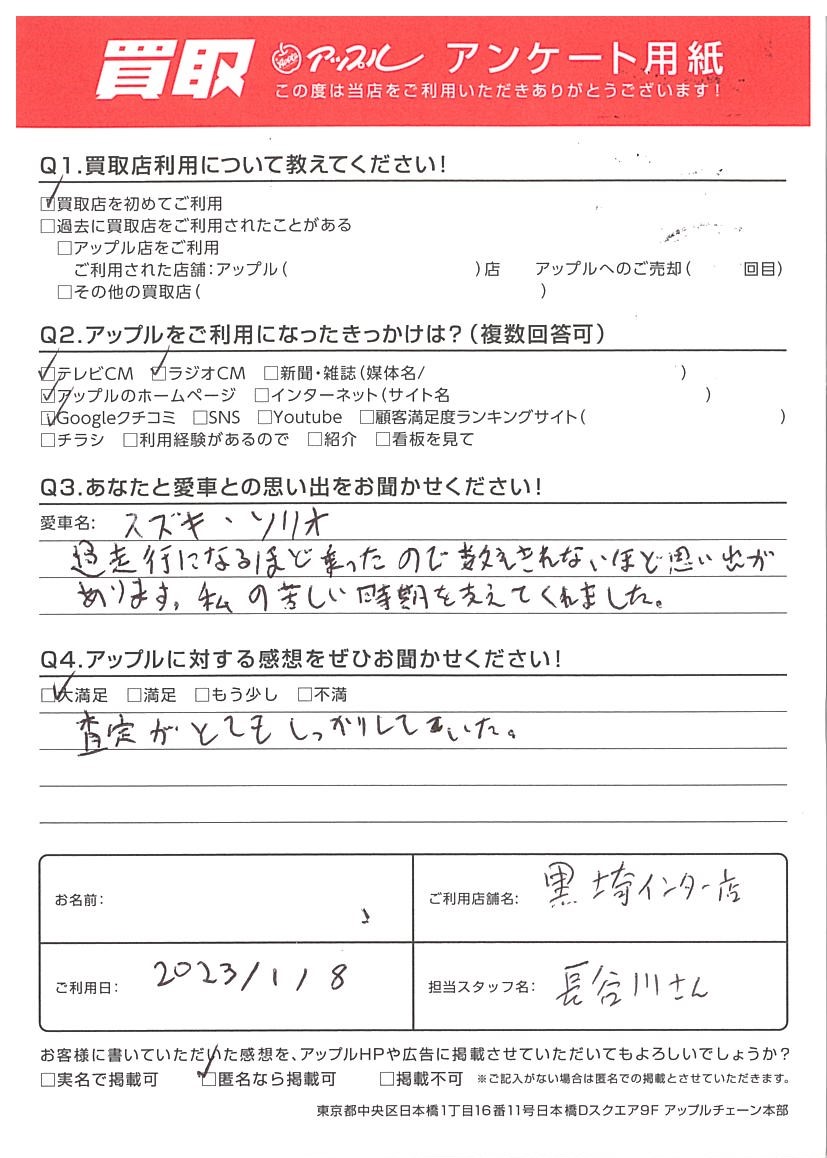 買取 アップル アンケート用紙
この度は当店をご利用いただきありがとうございます!
Q1.買取店利用について教えてください!
☑買取店を初めてご利用
□過去に買取店をご利用されたことがある
□アップル店をご利用
ご利用された店舗:アップル( )店 アップルへのご売却( 回目)
□その他の買取店( )
Q2.アップルをご利用になったきっかけは?(複数回答可)
☑テレビCM ☑ラジオCM □新聞・雑誌(媒体名/ )
☑アップルのホームページ □インターネット(サイト名 )
☑Googleクチコミ □SNS □Youtube □顧客満足度ランキングサイト( )
□チラシ □利用経験があるので □紹介 □看板を見て
Q3.あなたと愛車との思い出をお聞かせください!
愛車名: スズキ・ソリオ
過走行になるほど乗ったので数えきれないほど思い出が
あります。私の苦しい時期を支えてくれました。
Q4.アップルに対する感想をぜひお聞かせください!
☑大満足 □満足 □もう少し □不満
査定がとてもしっかりしていた。
お名前: ご利用店舗名: 黒埼インター店
ご利用日: 2023/1/8 担当スタッフ名: 長谷川さん
お客様に書いていただいた感想を、アップルHPや広告に掲載させていただいてもよろしいでしょうか?
□実名で掲載可 ☑匿名なら掲載可 □掲載不可 ※ご記入がない場合は匿名での掲載とさせていただきます。
東京都中央区日本橋1丁目16番11号日本橋Dスクエア9F アップルチェーン本部